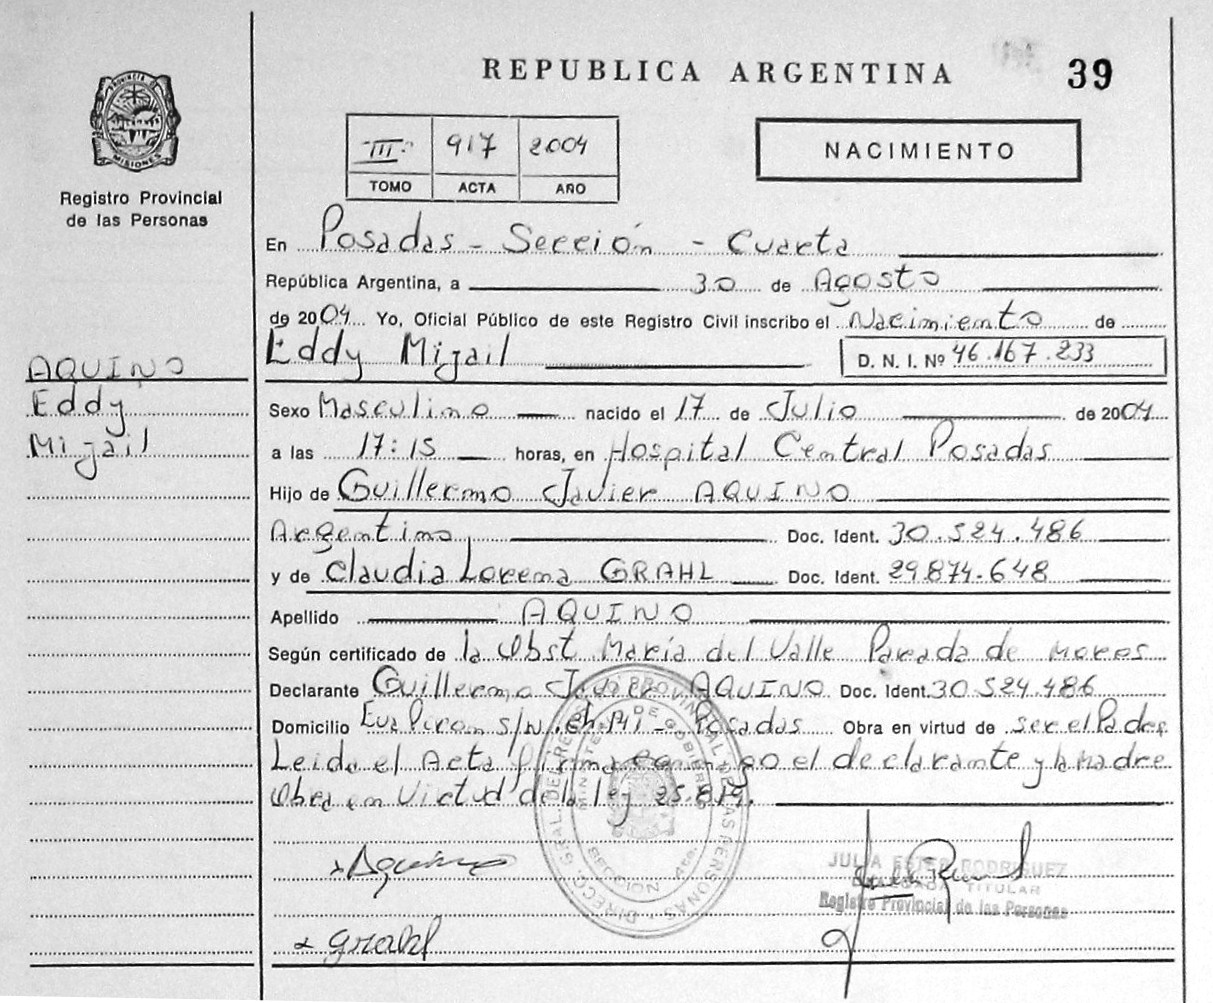 REPUBLICA ARGENTINA
39
PROVINCIA DE
MISIONES
Registro Provincial
de las Personas
III 917 2004
TOMO ACTA AÑO
NACIMIENTO
En Posadas - Sección - Cuarta
República Argentina, a 30 de Agosto
de 2004 Yo, Oficial Público de este Registro Civil inscribo el Nacimiento de
Eddy Mijail
D. N. I. Nº 46.167.233
AQUINO
Eddy
Mijail
Sexo Masculino nacido el 17 de Julio de 2004
a las 17:15 horas, en Hospital Central Posadas
Hijo de Guillermo Javier AQUINO
Argentino Doc. Ident. 30.524.486
y de Claudia Lorena GRAHL Doc. Ident. 29.874.648
Apellido AQUINO
Según certificado de la Obst. María del Valle Parada de
Declarante Guillermo Javier AQUINO Doc. Ident. 30.524.486
Domicilio Eva Peron s/N Posadas Obra en virtud de ser el Padre
Leida el Acta firma conmigo el declarante y la madre
Obra en virtud de la ley 25.819.
DIRECC. GRAL. DEL REG. PROVINCIAL DE LAS PERSONAS
MINISTERIO DE GOBIERNO
SECCION 4ta.
Aquino
JULIA ESTER RODRIGUEZ
DELEGADA TITULAR
Registro Provincial de las Personas
Grahl